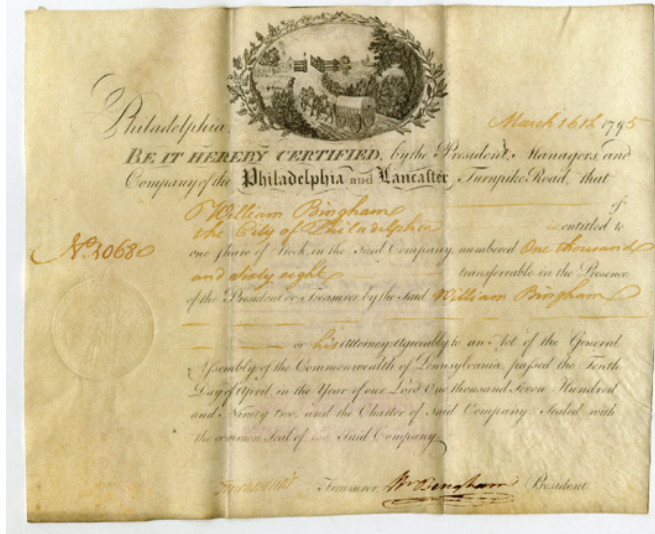 Philadelphia, March 16th 1795
BE IT HEREBY CERTIFIED, by the President, Managers, and
Company of the Philadelphia and Lancaster Turnpike Road, that
William Bingham of
the City of Philadelphia is entitled to
No. 1068 one share of Stock in the said Company, numbered One thousand
and sixty eight transferrable in the Presence
of the President or Treasurer, by the said William Bingham
or his Attorney, Agreeably to an Act of the General
Assembly of the Commonwealth of Pennsylvania, passed the Tenth
Day of April, in the Year of our Lord One thousand Seven Hundred
and Ninety two, and the Charter of said Company. Sealed with
the common Seal of the Said Company.
Treasurer. Wm Bingham President